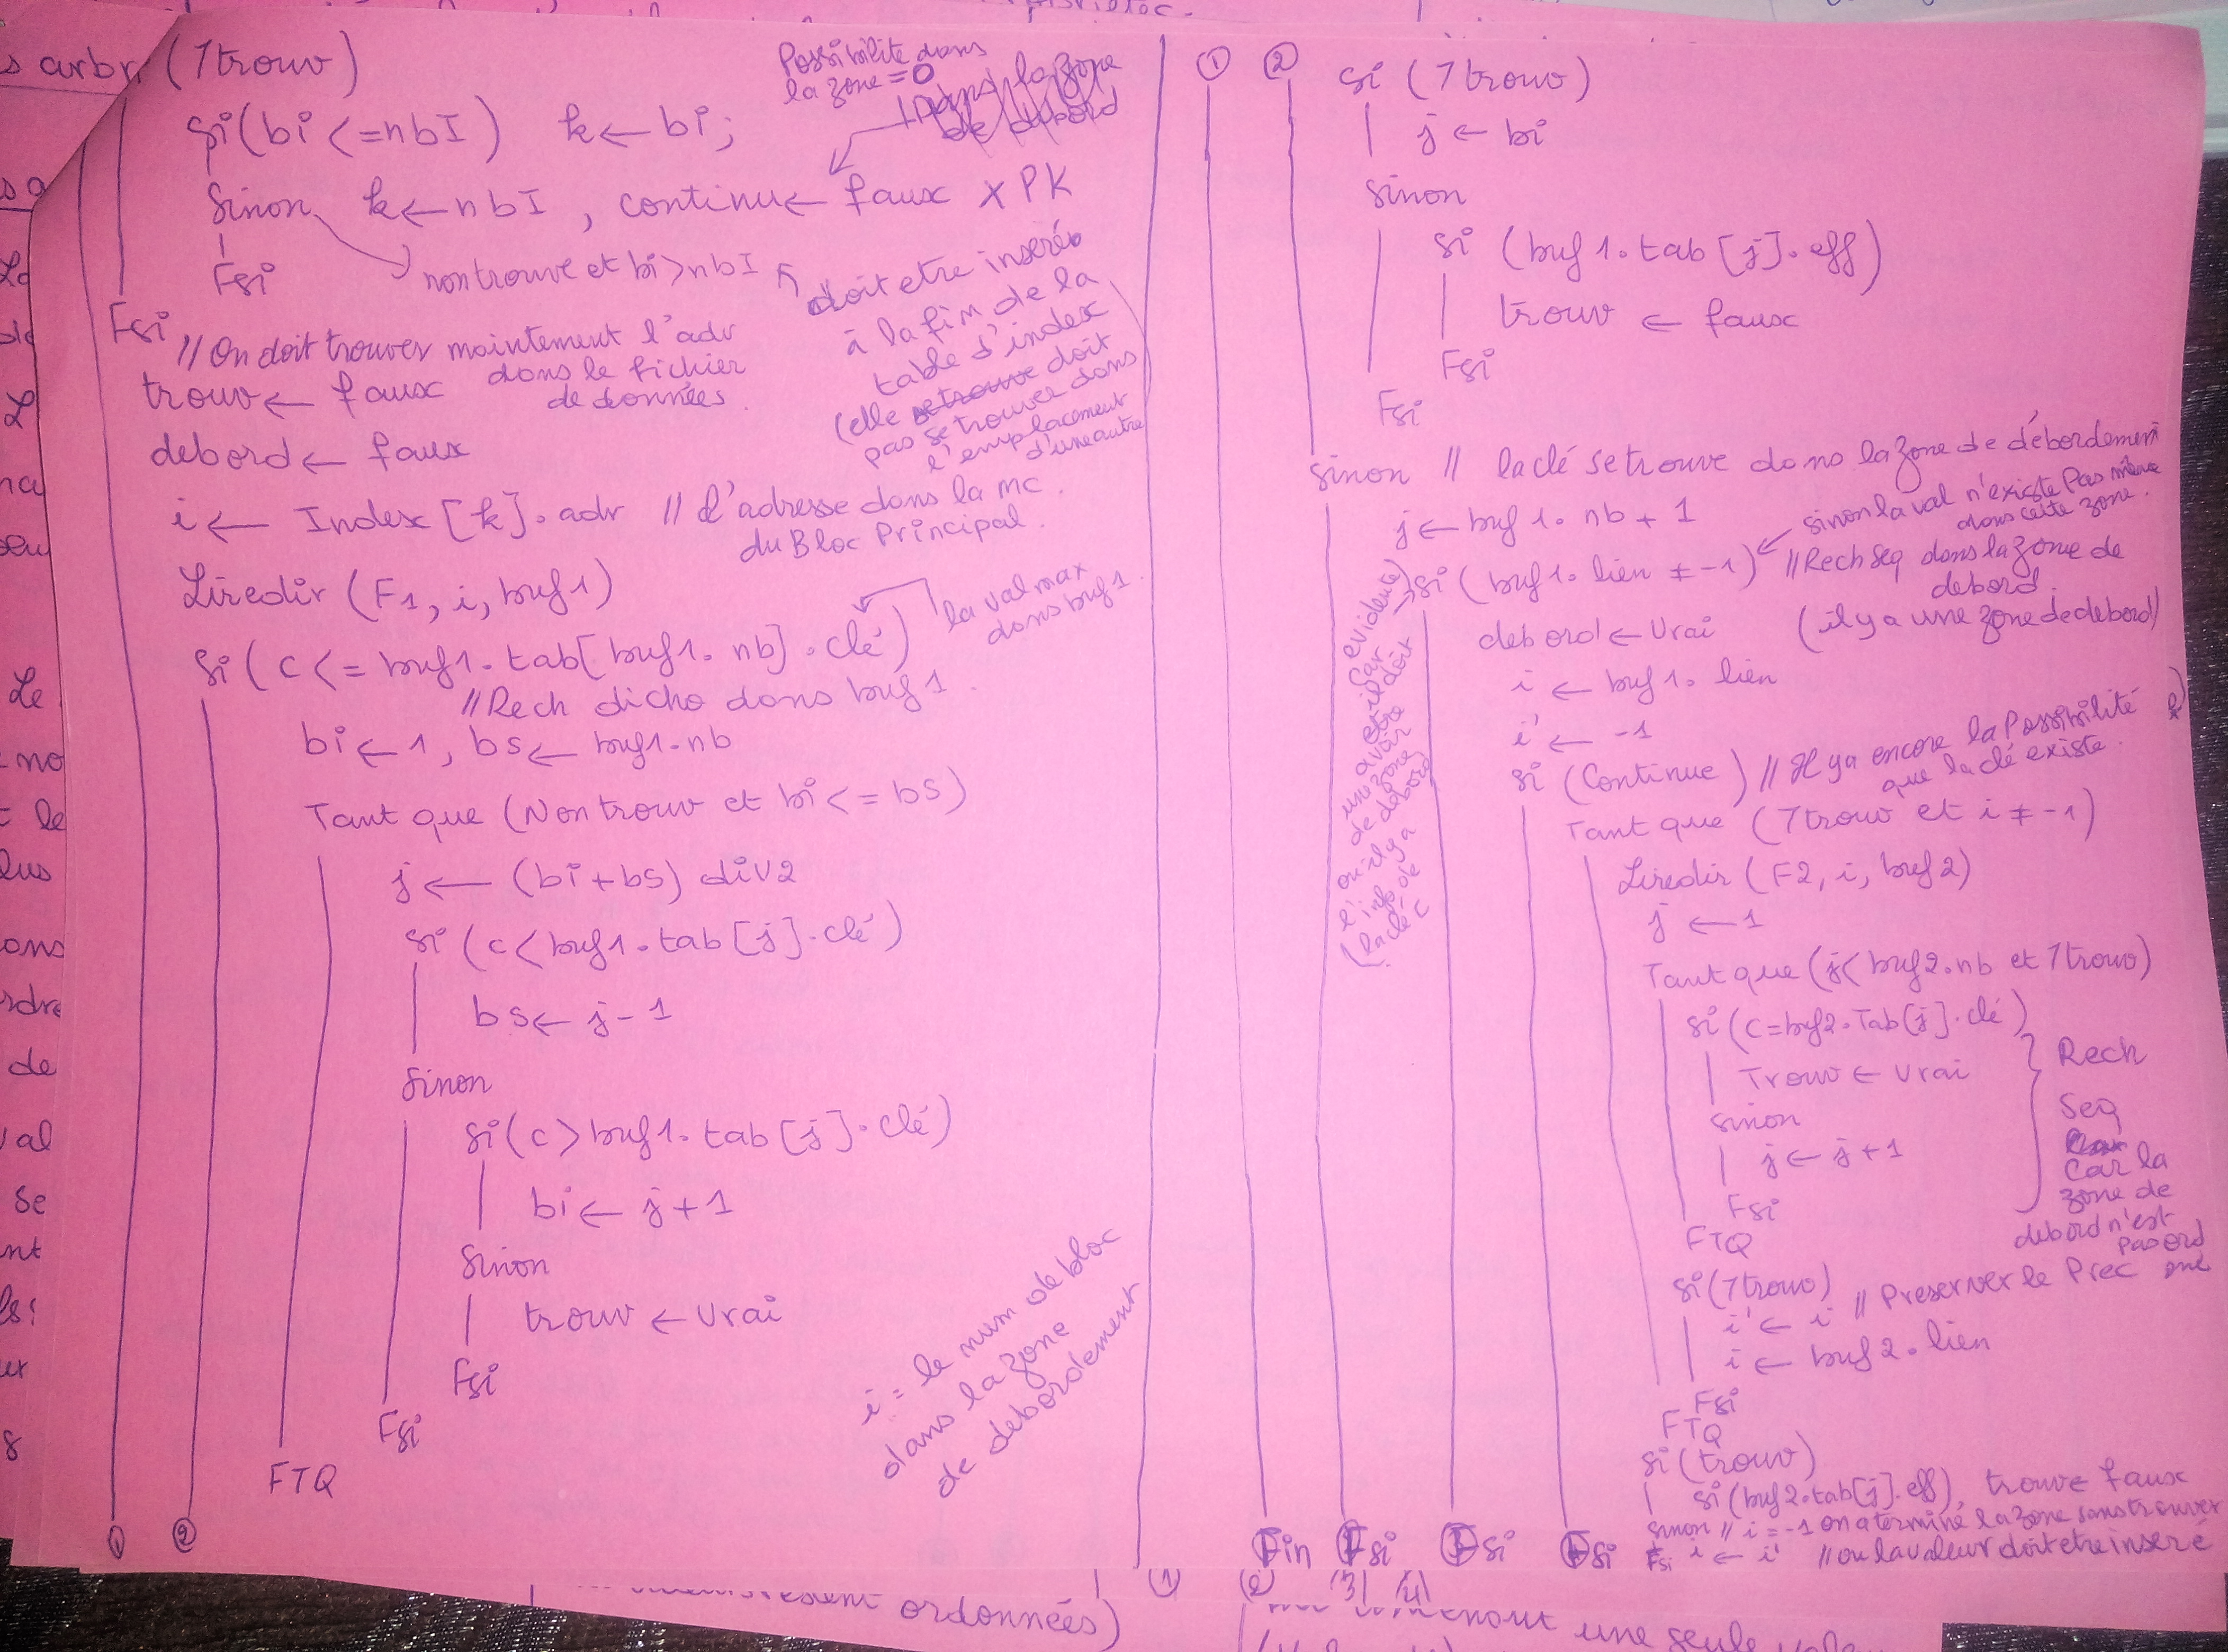 (7trouv)
Possibilite dans
la zone = 0
dans la zone
de debord
si(bi <= nbI) k ← bi;
Sinon k ← nbI , continu ← faux x PK
Fsi
non trouvé et bi > nbI
doit etre inseré
à la fin de la
table d'index
(elle doit
pas se trouver dans
l'emplacement
d'une autre
Fsi
//On doit trouver maintement l'adr
dans le fichier
de données.
trouv ← faux
debord ← faux
i ← Index [k]. adr // l'adresse dans la mc.
du Bloc Principal.
Liredir (F1, i, buf1)
la val max
dans buf1.
si (c <= buf1.tab[buf1.nb].clé)
//Rech dicho dans buf1.
bi ← 1, bs ← buf1.nb
Tant que (Non trouv et bi <= bs)
j ← (bi+bs) div2
si (c < buf1.tab[j].clé)
bs ← j-1
Sinon
si (c > buf1.tab[j].clé)
bi ← j+1
Sinon
trouv ← Vrai
Fsi
Fsi
FTQ
i = le num de bloc
dans la zone
de debordement
① ②
① ②
si (7trouv)
j ← bi
Sinon
si (buf1.tab[j].eff)
trouv ← faux
Fsi
Fsi
Sinon // la clé se trouve dans la zone de débordement
j ← buf1.nb + 1
sinon la val n'existe Pas même
dans cette zone.
si (buf1.lien ≠ -1) //Rech seq dans la zone de
debord.
debord ← Vrai (il y a une zone de debord)
evidente)
car
et il doit
avoir
une zone
de debord
où il y a
l'info de
(la clé c
i ← buf1.lien
i' ← -1
si (Continue) // Il ya encore la Possibilité
que la clé existe.
Tant que (7trouv et i ≠ -1)
Liredir (F2, i, buf2)
j ← 1
Tant que (j < buf2.nb et 7trouv)
si (c = buf2.Tab[j].clé)
Trouv ← Vrai
sinon
j ← j+1
Fsi
FTQ
Rech
Seq
car la
zone de
debord n'est
pas ord
oné
si (7trouv)
i' ← i // Preserver le Prec
i ← buf2.lien
Fsi
FTQ
si (trouv)
si (buf2.tab[j].eff), trouv ← faux
sinon // i = -1 on a terminé la zone sans trouver
Fsi i ← i' // ou la valeur doit etre inseré
Fin Fsi Fsi Fsi
(1) (2) (3) (4)
ordonnées)
une seule